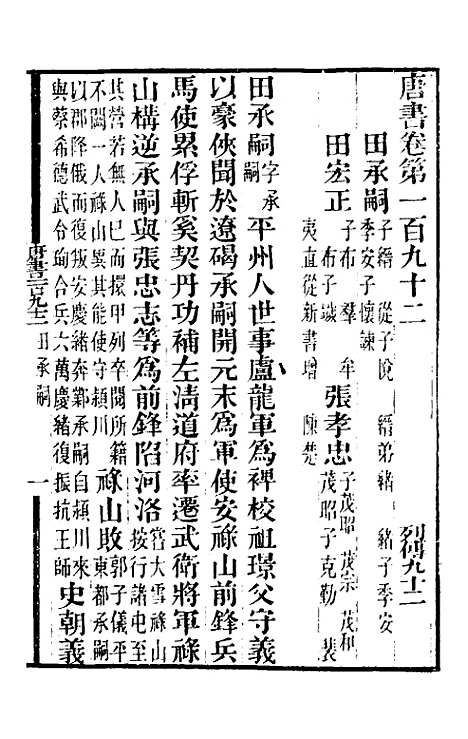 唐書卷第一百九十二　列傳九十二
田承嗣 子縉 從子悅 縉弟緒 緒子季安
季安子懷諫
田宏正 子布 羣 牟
布子 張孝忠 子茂昭 茂宗 茂和
茂昭子克勤 裴
夷直從新書增 陳楚
田承嗣字承嗣平州人世事盧龍軍為裨校祖璟父守義
以豪俠聞於遼碣承嗣開元末為軍使安祿山前鋒兵
馬使累俘斬奚契丹功補左清道府率遷武衛將軍祿
山構逆承嗣與張忠志等為前鋒陷河洛嘗大雪祿山按行諸屯至
其營若無人已而擐甲列卒閱所籍不闕一人祿山異其能使守潁川祿山敗郭子儀平東都承嗣
以郡降俄而復叛安慶緒奔鄴承嗣自潁川來與蔡希德武令珣合兵六萬慶緒復振抗王師史朝義
唐書一百九十二 田承嗣 一